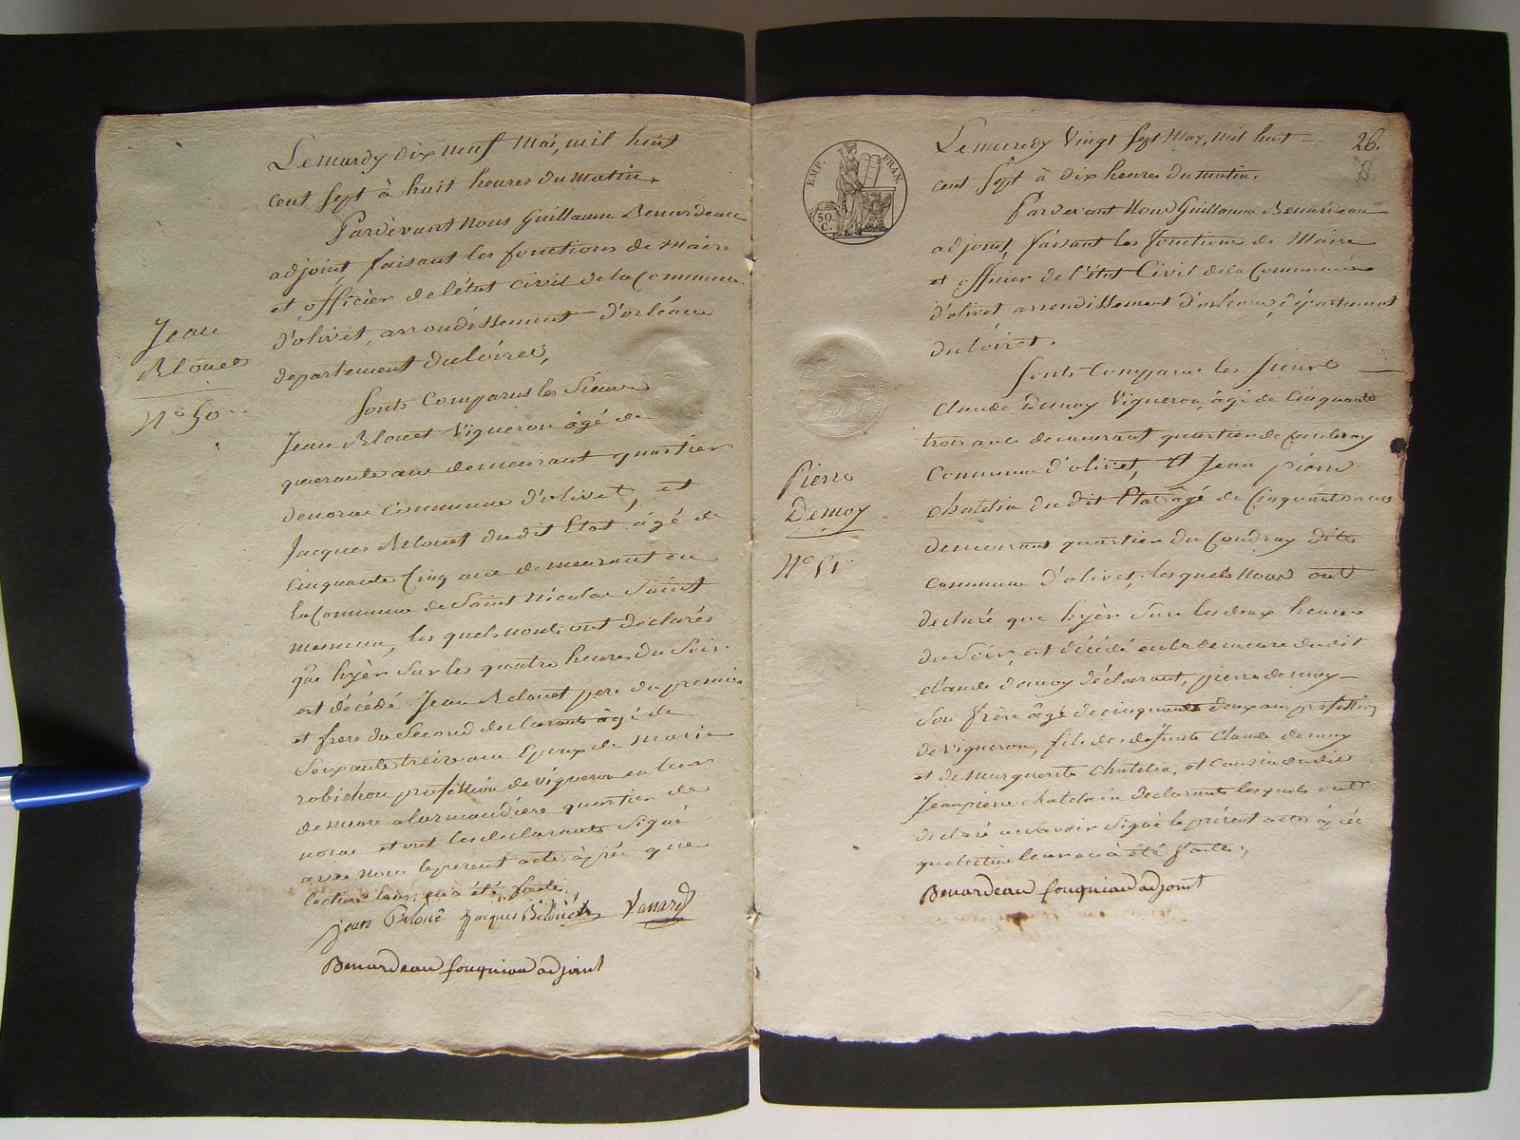 Le mardy dix neuf Mai, mil huit
cent sept à huit heures du matin.
Pardevant Nous Guillaume Benardeau
adjoint, faisant les fonctions de Maire
et officier de l'état Civil de la Commune
d'olivet, arrondissement d'orléans
departement du loiret,
Jean
Blouet
N° 50
Sonts Comparus les Sieurs
Jean Blouet Vigneron âgé de
quarante ans demeurant quartier
de Commune d'olivet, et
Jacques Blouet du dit Etat âgé de
cinquante Cinq ans demeurant en
la Commune de Saint Nicolas Saint
mesmin, les quels nous ont declarés
que hyèr Sur les quatre heures du Soir
est décédé Jean Blouet pere du premier
et frere du Second declarants âgé de
Soixante treize ans Epoux de Marie
robichon profession de vigneron en leur
demeure quartier de
et ont les declarants Signé
avec nous le present acte après que
lecture leur en a été faite.
jean Beloué Jacques Belouet
Benardeau fouqniau adjoint
EMP. FRAN.
50
C.
26.
Le mercredy Vingt Sept May, mil huit
cent Sept à dix heures du matin.
Pardevant Nous Guillaume Benardeau
adjoint, faisant les fonctions de Maire
et officier de l'état Civil de la Commune
d'olivet arrondissement d'orléans, département
du loiret.
Sonts Comparus les Sieurs
Claude Demoy Vigneron, âgé de Cinquante
trois ans demeurant quartier du Coudray
Commune d'olivet, Et Jean pierre
Chatelin du dit Etat âgé de Cinquante ans
Pierre
Demoy
N° 51
demeurant quartier du Coudray dite
Commune d'olivet, lesquels Nous ont
declaré que hyèr Sur les deux heures
du Soir, est décédé en la demeure du dit
Claude demoy déclarant, pierre demoy
Son frère âgé de cinquante deux ans profession
de vigneron, fils de defunts Claude demoy
et de marguerite Chatelin, et Cousin du dit
Jean pierre chatelain declarants lesquels ont
declaré ne Savoir Signé le présent acte après
que lecture leur en a été faite.
Benardeau fouqniau adjoint